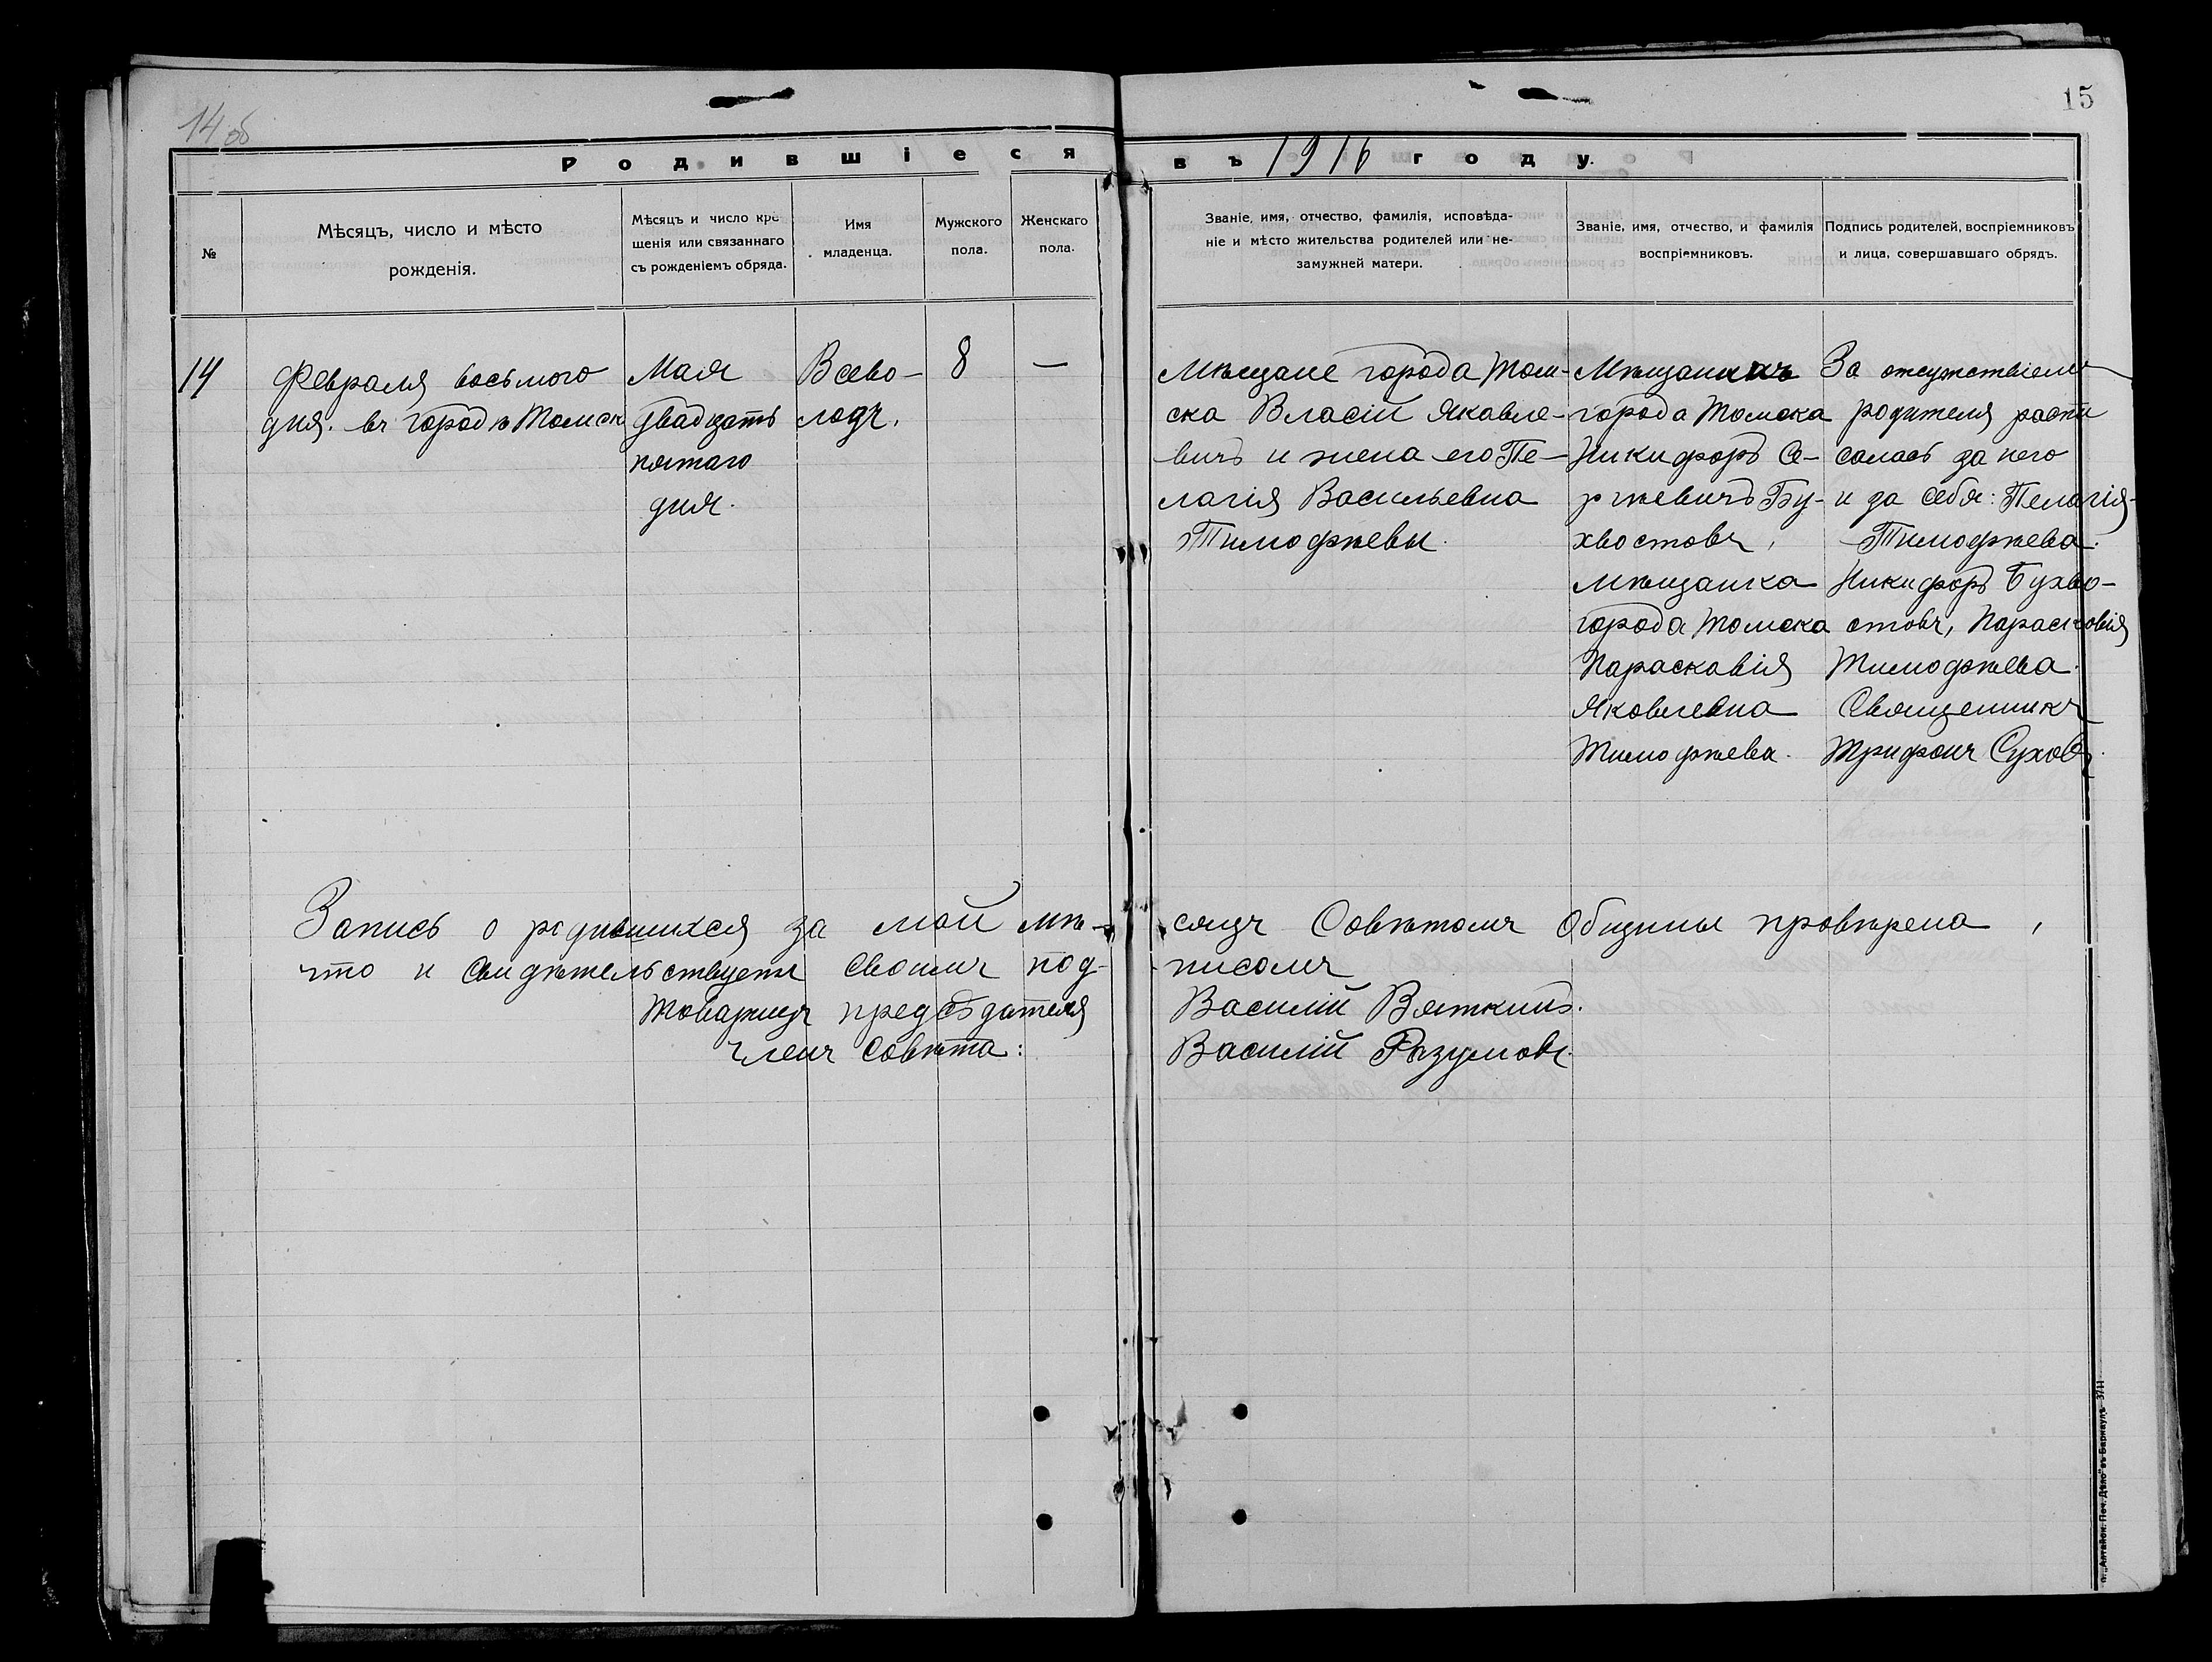 14 об
15
Родившіеся въ 1916 году.
№
Мѣсяцъ, число и мѣсто
рожденія.
Мѣсяцъ и число кре-
щенія или связаннаго
съ рожденіемъ обряда.
Имя
младенца.
Мужского
пола.
Женскаго
пола.
Званіе, имя, отчество, фамилія, исповѣда-
ніе и мѣсто жительства родителей или не-
замужней матери.
Званіе, имя, отчество, и фамилія
воспріемниковъ.
Подпись родителей, воспріемниковъ
и лица, совершавшаго обрядъ.
14
Февраля восьмого
дня. въ городѣ Томск
Мая
двадцать
пятаго
дня.
Всево-
лодъ.
8
—
Мѣщане города Том-
ска Власій Яковле-
вичъ и жена его Пе-
лагія Васильевна
Тимофѣевы.
Мѣщанинъ
города Томска
Никифоръ Се-
ргѣевичъ Бу-
хвостовъ,
мѣщанка
города Томска
Парасковія
Яковлевна
Тимофѣева.
За отсутствіемъ
родителя распи
салась за него
и за себя: Пелагія
Тимофѣева.
Никифоръ Бухво-
стовъ, Парасковія
Тимофѣева.
Священникъ
Трифонъ Суховъ.
Запись о родившихся за май мѣ-
сяцъ Совѣтомъ Общины провѣрена,
что и свидѣтельствуемъ своимъ под-
писомъ
Товарищъ предсѣдателя
Василій Вяткинъ.
Членъ Совѣта:
Василій Разумовъ.
п. „Алтайск. Печ. Дѣло" въ Барнаулѣ—3711